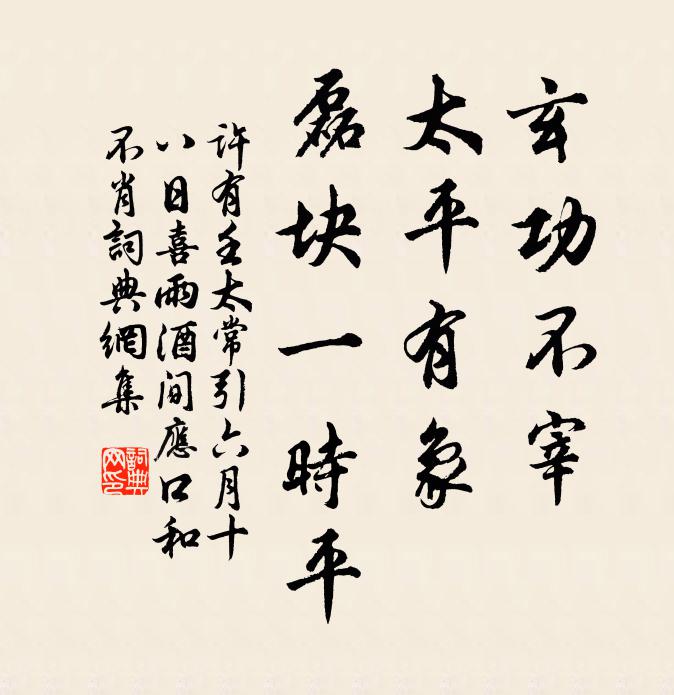 玄功不宰
太平有象
磊块一時平
許有壬太常引六月十
八日喜雨酒间應口和
不肖詞典網集
詞典網印